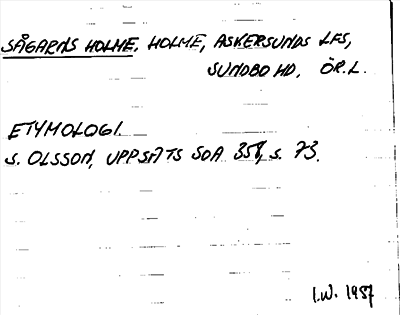 SÅGARNS HOLME, HOLME, ASKERSUNDS LFS,
SUNDBO HD, ÖR.L.
ETYMOLOGI.
S. OLSSON, UPPSATS SOA 358, S. 73.
I.W. 1987